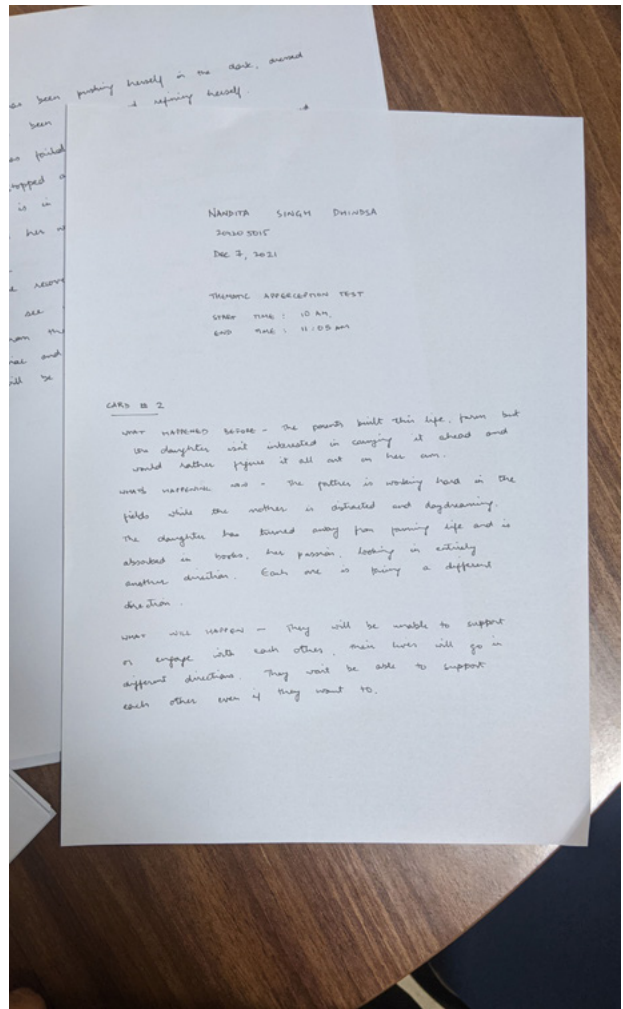 has been pushing herself in the dark, dressed
been refining herself.
has failed
stopped a
is in
her w
see
will be
NANDITA SINGH DHINDSA
Dec 7, 2021
THEMATIC APPERCEPTION TEST
START TIME : 10 AM.
END TIME : 11:05 AM
CARD # 2
WHAT HAPPENED BEFORE - The parents built this life, farm but
daughter isn't interested in carrying it ahead and
would rather figure it all out on her own.
WHAT'S HAPPENING NOW - The father is working hard in the
fields while the mother is distracted and daydreaming.
The daughter has turned away from farming life and is
absorbed in books, her passion, looking in entirely
another direction. Each one is facing a different
direction.
WHAT WILL HAPPEN - They will be unable to support
or engage with each other. Their lives will go in
different directions. They won't be able to support
each other even if they want to.